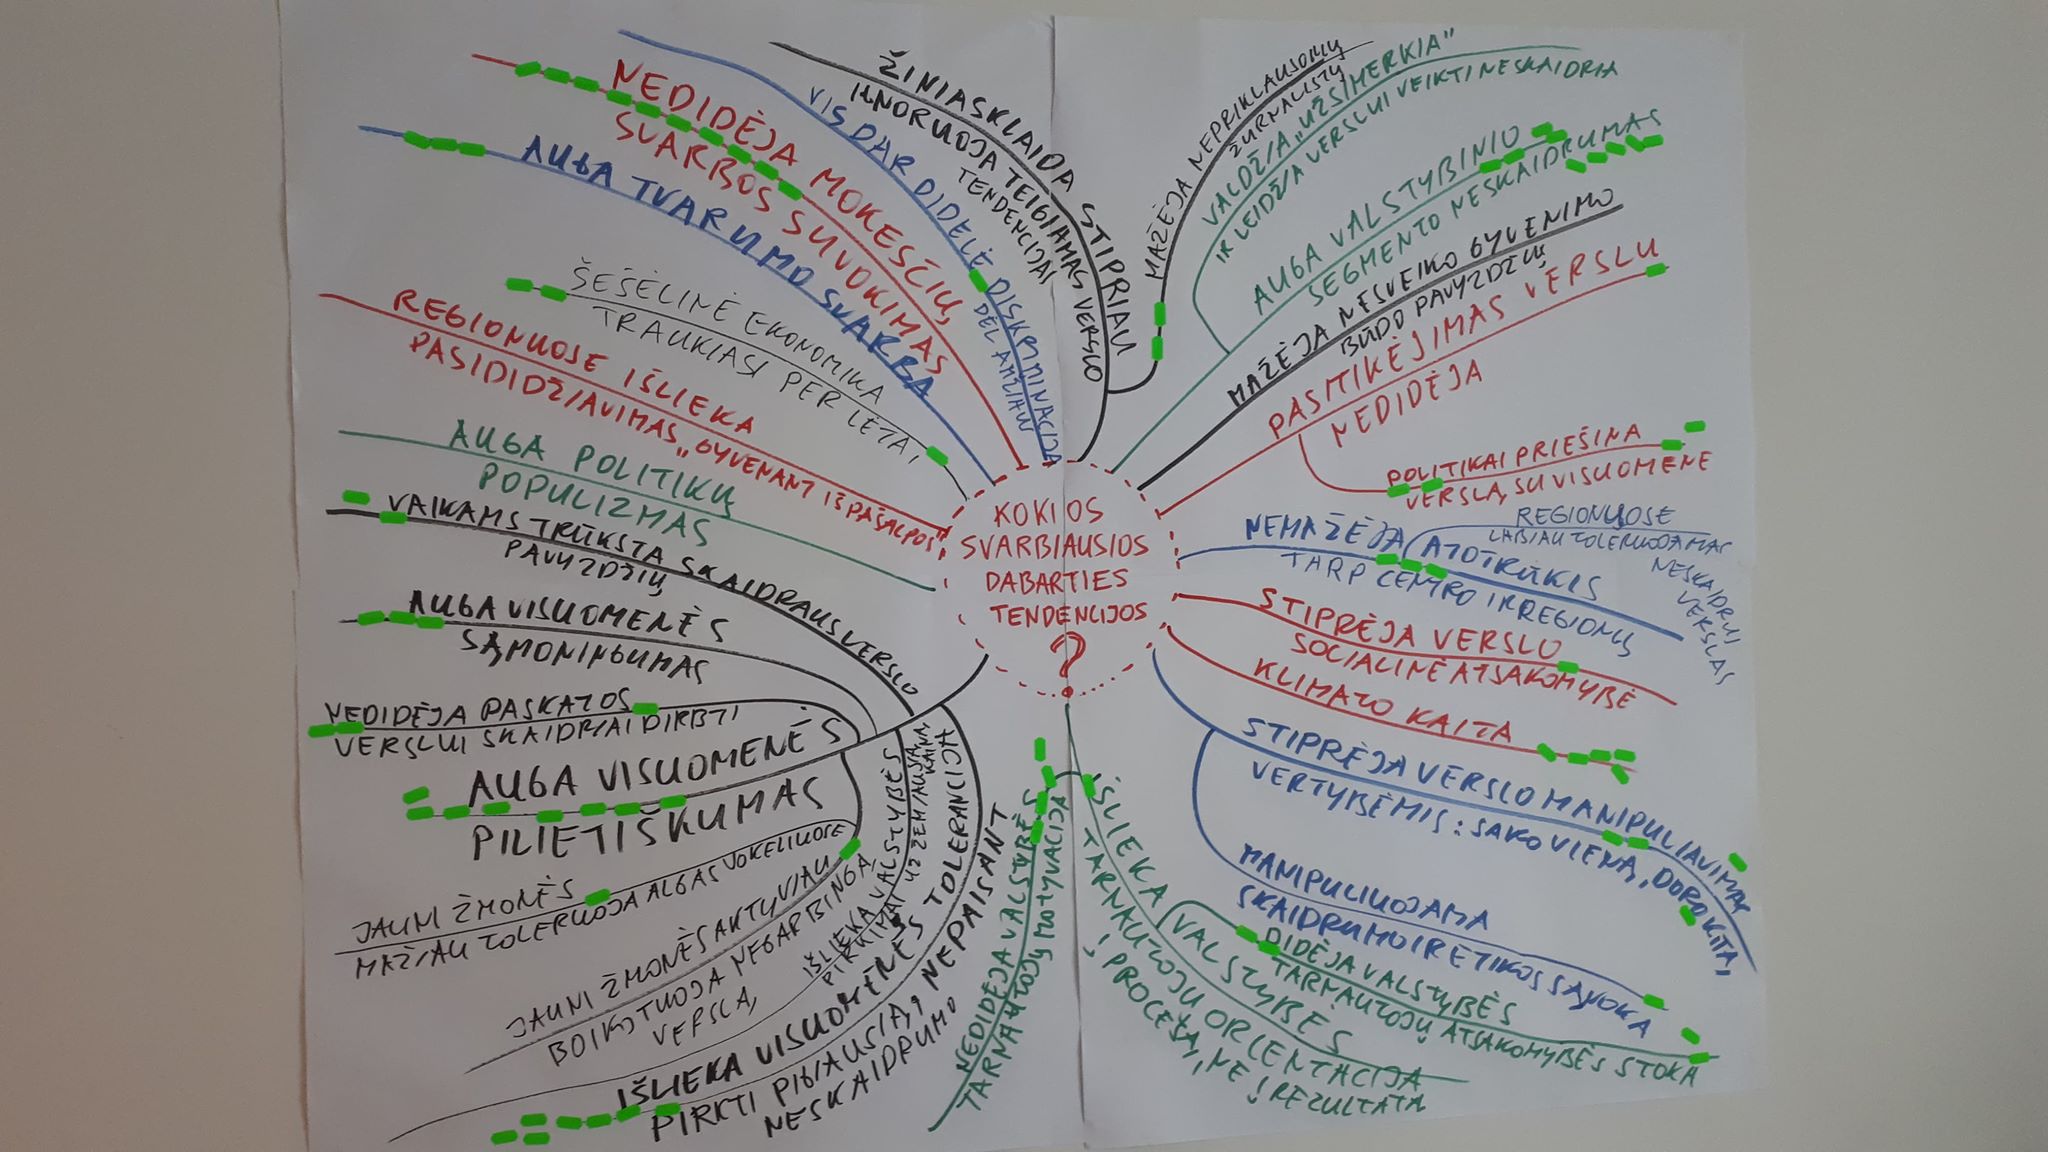 KOKIOS
SVARBIAUSIOS
DABARTIES
TENDENCIJOS
?
MAŽĖJA NEPRIKLAUSOMŲ
ŽURNALISTŲ
VALDŽIA „UŽSIMERKIA"
IR LEIDŽIA VERSLUI VEIKTI NESKAIDRIA
AUGA VALSTYBINIO
SEGMENTO NESKAIDRUMAS
MAŽĖJA NESVEIKO GYVENIMO
BŪDO PAVYZDŽIŲ
PASITIKĖJIMAS VERSLU
NEDIDĖJA
POLITIKAI PRIEŠINA
VERSLĄ SU VISUOMENE
NEMAŽĖJA ATOTRŪKIS
TARP CENTRO IR REGIONŲ
REGIONUOSE
LABIAU TOLERUOJAMAS
NESKAIDRUS
VERSLAS
STIPRĖJA VERSLO
SOCIALINĖ ATSAKOMYBĖ
KLIMATO KAITA
STIPRĖJA VERSLO MANIPULIAVIMAS
VERTYBĖMIS: SAKO VIENĄ, DARO KITĄ,
MANIPULIUOJAMA
SKAIDRUMO IR ETIKOS SĄVOKA
IŠLIEKA VALSTYBĖS
TARNAUTOJŲ ORIENTACIJA
Į PROCESĄ, NE Į REZULTATĄ
DIDĖJA VALSTYBĖS
TARNAUTOJŲ ATSAKOMYBĖS STOKA
NEDIDĖJA VALSTYBĖS
TARNAUTOJŲ MOTYVACIJA
IŠLIEKA VISUOMENĖS TOLERANCIJA
PIRKTI PIGIAUSIĄ, NEPAISANT
NESKAIDRUMO
IŠLIEKA VALSTYBĖS
PIRKIMAI UŽ ŽEMIAUSIĄ
KAINĄ
JAUNI ŽMONĖS AKTYVIAU
BOIKOTUOJA NEGARBINGĄ
VERSLĄ
JAUNI ŽMONĖS
MAŽIAU TOLERUOJA ALGAS VOKELIUOSE
AUGA VISUOMENĖS
PILIETIŠKUMAS
NEDIDĖJA PASKATOS
VERSLUI SKAIDRIAI DIRBTI
AUGA VISUOMENĖS
SĄMONINGUMAS
VAIKAMS TRŪKSTA SKAIDRAUS VERSLO
PAVYZDŽIŲ
AUGA POLITIKŲ
POPULIZMAS
REGIONUOSE IŠLIEKA
PASIDIDŽIAVIMAS „GYVENANT IŠ PAŠALPOS"
ŠEŠĖLINĖ EKONOMIKA
TRAUKIASI PER LĖTAI
AUGA TVARUMO SVARBA
NEDIDĖJA MOKESČIŲ
SVARBOS SUVOKIMAS
VIS DAR DIDELĖ DISKRIMINACIJA
DĖL AMŽIAUS
ŽINIASKLAIDA STIPRIAU
IGNORUOJA TEIGIAMAS VERSLO
TENDENCIJAS